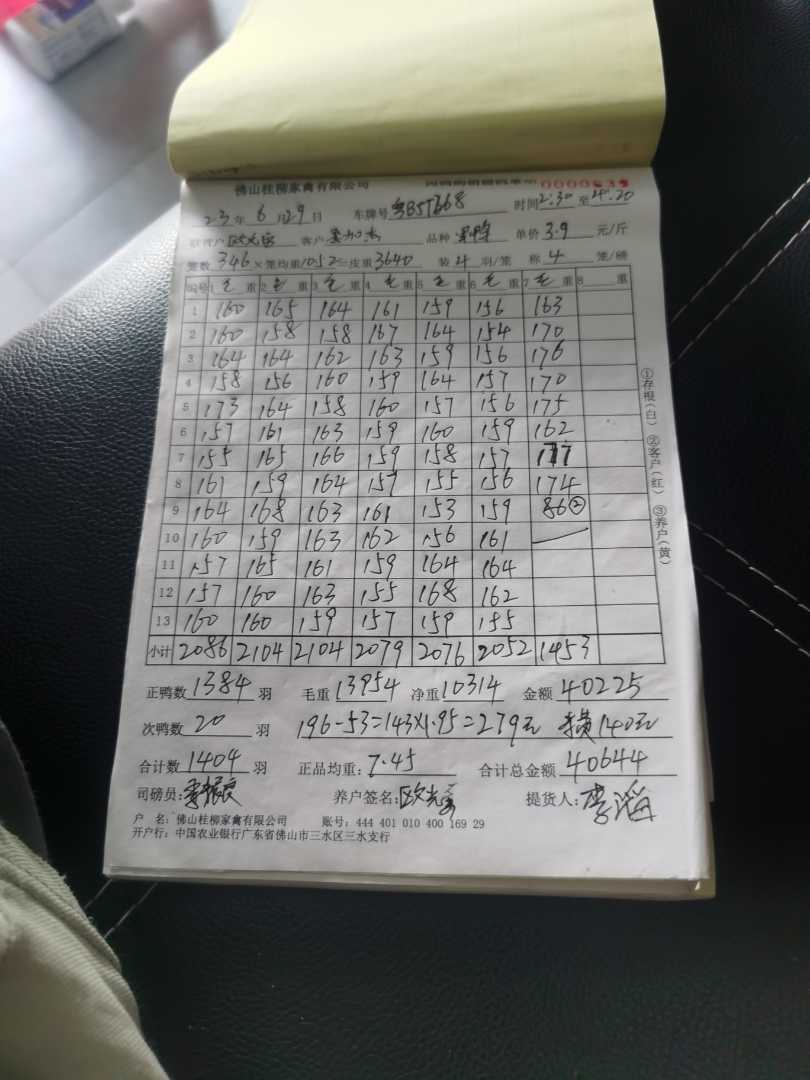 佛山桂柳家禽有限公司 0000639
23年6月29日 车牌号 时间2:30至4:20
客户 品种 单价3.9元/斤
笼数346×笼均重10.52=皮重3640 装4羽/笼 称4笼/磅
编号 1毛重 2毛重 3毛重 4毛重 5毛重 6毛重 7毛重 8 重
1 160 165 164 161 159 156 163
2 160 158 158 167 164 154 170
3 164 164 162 163 159 156 176
4 158 156 160 159 164 157 170
5 173 164 158 160 157 156 175
6 157 161 163 159 160 159 162
7 155 165 166 159 158 157 177
8 161 159 164 157 155 156 174
9 164 168 163 161 153 159 86②
10 160 159 163 162 156 161
11 157 165 161 159 164 164
12 157 160 163 155 168 162
13 160 160 159 157 159 155
小计 2086 2104 2104 2079 2076 2052 1453
①存根(白) ②客户(红) ③养户(黄)
正鸭数1384羽 毛重13954 净重10314 金额40225
次鸭数20羽 196-53=143×1.95=279元 140元
合计数1404羽 正品均重:7.45 合计总金额40644
司磅员: 养户签名: 提货人:李滔
户 名:佛山桂柳家禽有限公司 账号:444 401 010 400 169 29
开户行:中国农业银行广东省佛山市三水区三水支行